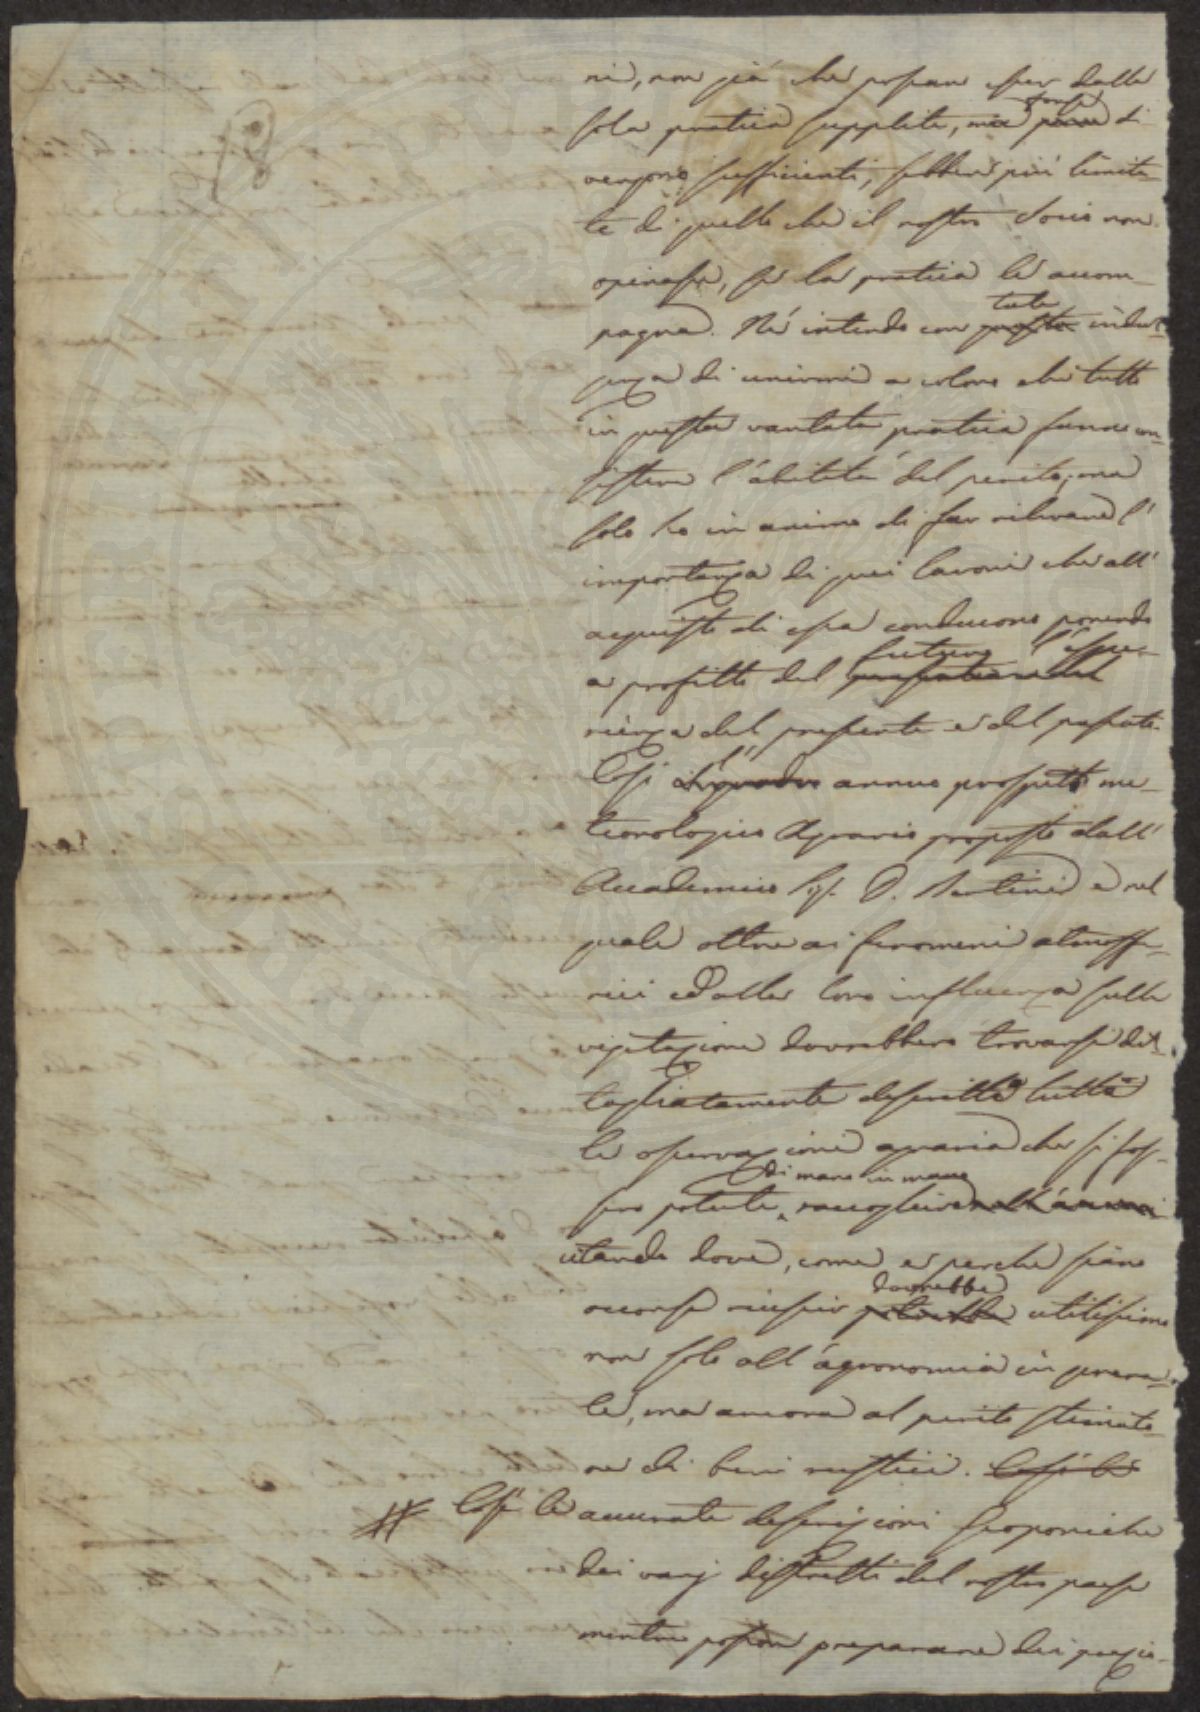 ni, non già che possan esser dalla
sola pratica supplite, ma forse di
vengono sufficienti, sebben più limita-
te di quello che il nostro Socio non
opinasse, se la pratica le accom-
pagna. Né intendo con tale indul-
genza di unirmi a coloro che tutto
in questa vantata pratica fanno con-
sistere l'abilità del perito; ma
solo ho in animo di far rilevare l'
importanza di quei lavori che all'
acquisto di essa conducono ponendo
a profitto del futuro l'espe-
rienza del presente e del passato.
Così l'annuo prospetto me-
teorologico Agrario proposto dall'
Accademico Sig. D. e nel
quale oltre ai fenomeni atmosfe-
rici ed alla loro influenza sulla
vegetazione dovrebbero trovarsi det-
tagliatamente descritte tutte
le osservazioni agrarie che si fos-
sero potute di mano in mano raccogliere
citando dove, come e perché siano
occorse riuscir dovrebbe utilissimo
non solo all'agronomia in genera-
le, ma ancora al perito stimato-
re di beni rustici. Così le
# Così le accurate descrizioni geoponiche
dei varj distretti del nostro paese
mentre posson preparare dei prezio-